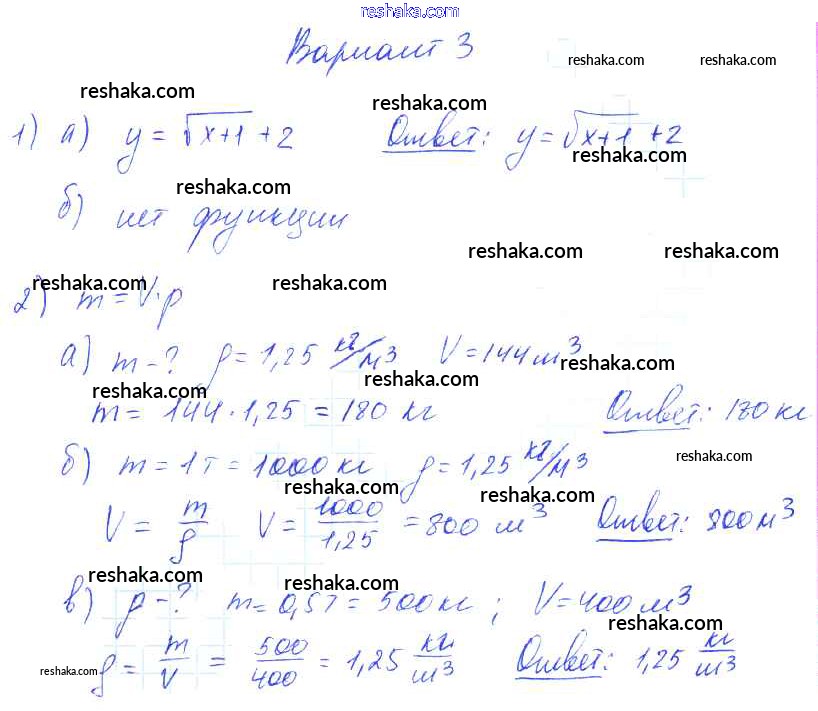 reshaka.com
Вариант 3
reshaka.com reshaka.com
reshaka.com reshaka.com
1) а) y = √(x+1) + 2 Ответ: y = √(x+1) + 2
reshaka.com
reshaka.com
б) нет функции
reshaka.com reshaka.com
reshaka.com reshaka.com
2) m = V·ρ
а) m - ? ρ = 1,25 кг/м³ V = 144 м³
reshaka.com
reshaka.com reshaka.com
m = 144 · 1,25 = 180 кг Ответ: 180 кг
reshaka.com
б) m = 1т = 1000 кг ρ = 1,25 кг/м³
reshaka.com reshaka.com
V = m/ρ V = 1000/1,25 = 800 м³ Ответ: 800 м³
reshaka.com reshaka.com
в) ρ - ? m = 0,5т = 500 кг ; V = 400 м³
reshaka.com
ρ = m/V = 500/400 = 1,25 кг/м³ Ответ: 1,25 кг/м³
reshaka.com